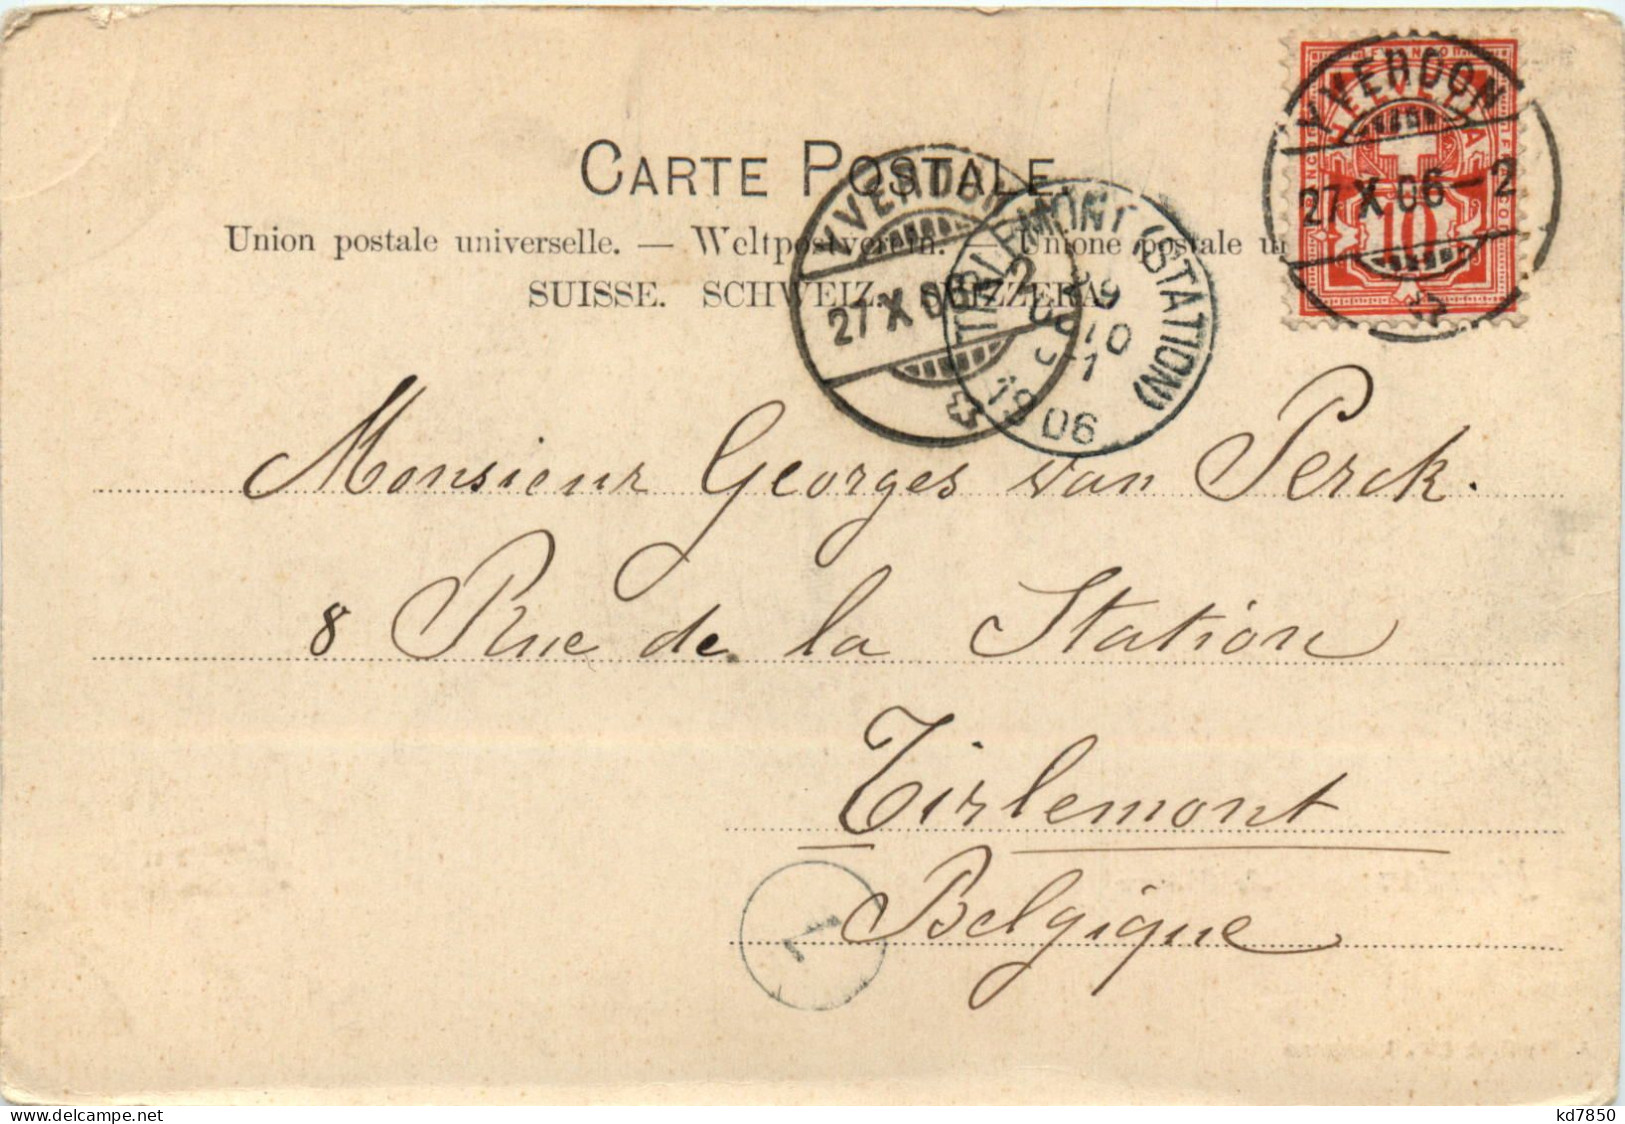 CARTE POSTALE
Union postale universelle. — Weltpostverein. — Unione postale
SUISSE. SCHWEIZ. SVIZZERA
YVERDON
27 X 06-2
HELVETIA
10
YVERDON
27 X 06-2
(STATION)
29
10
1906
Monsieur Georges van Perck.
8 Rue de la Station
Tirlemont
Belgique
1
kd7850